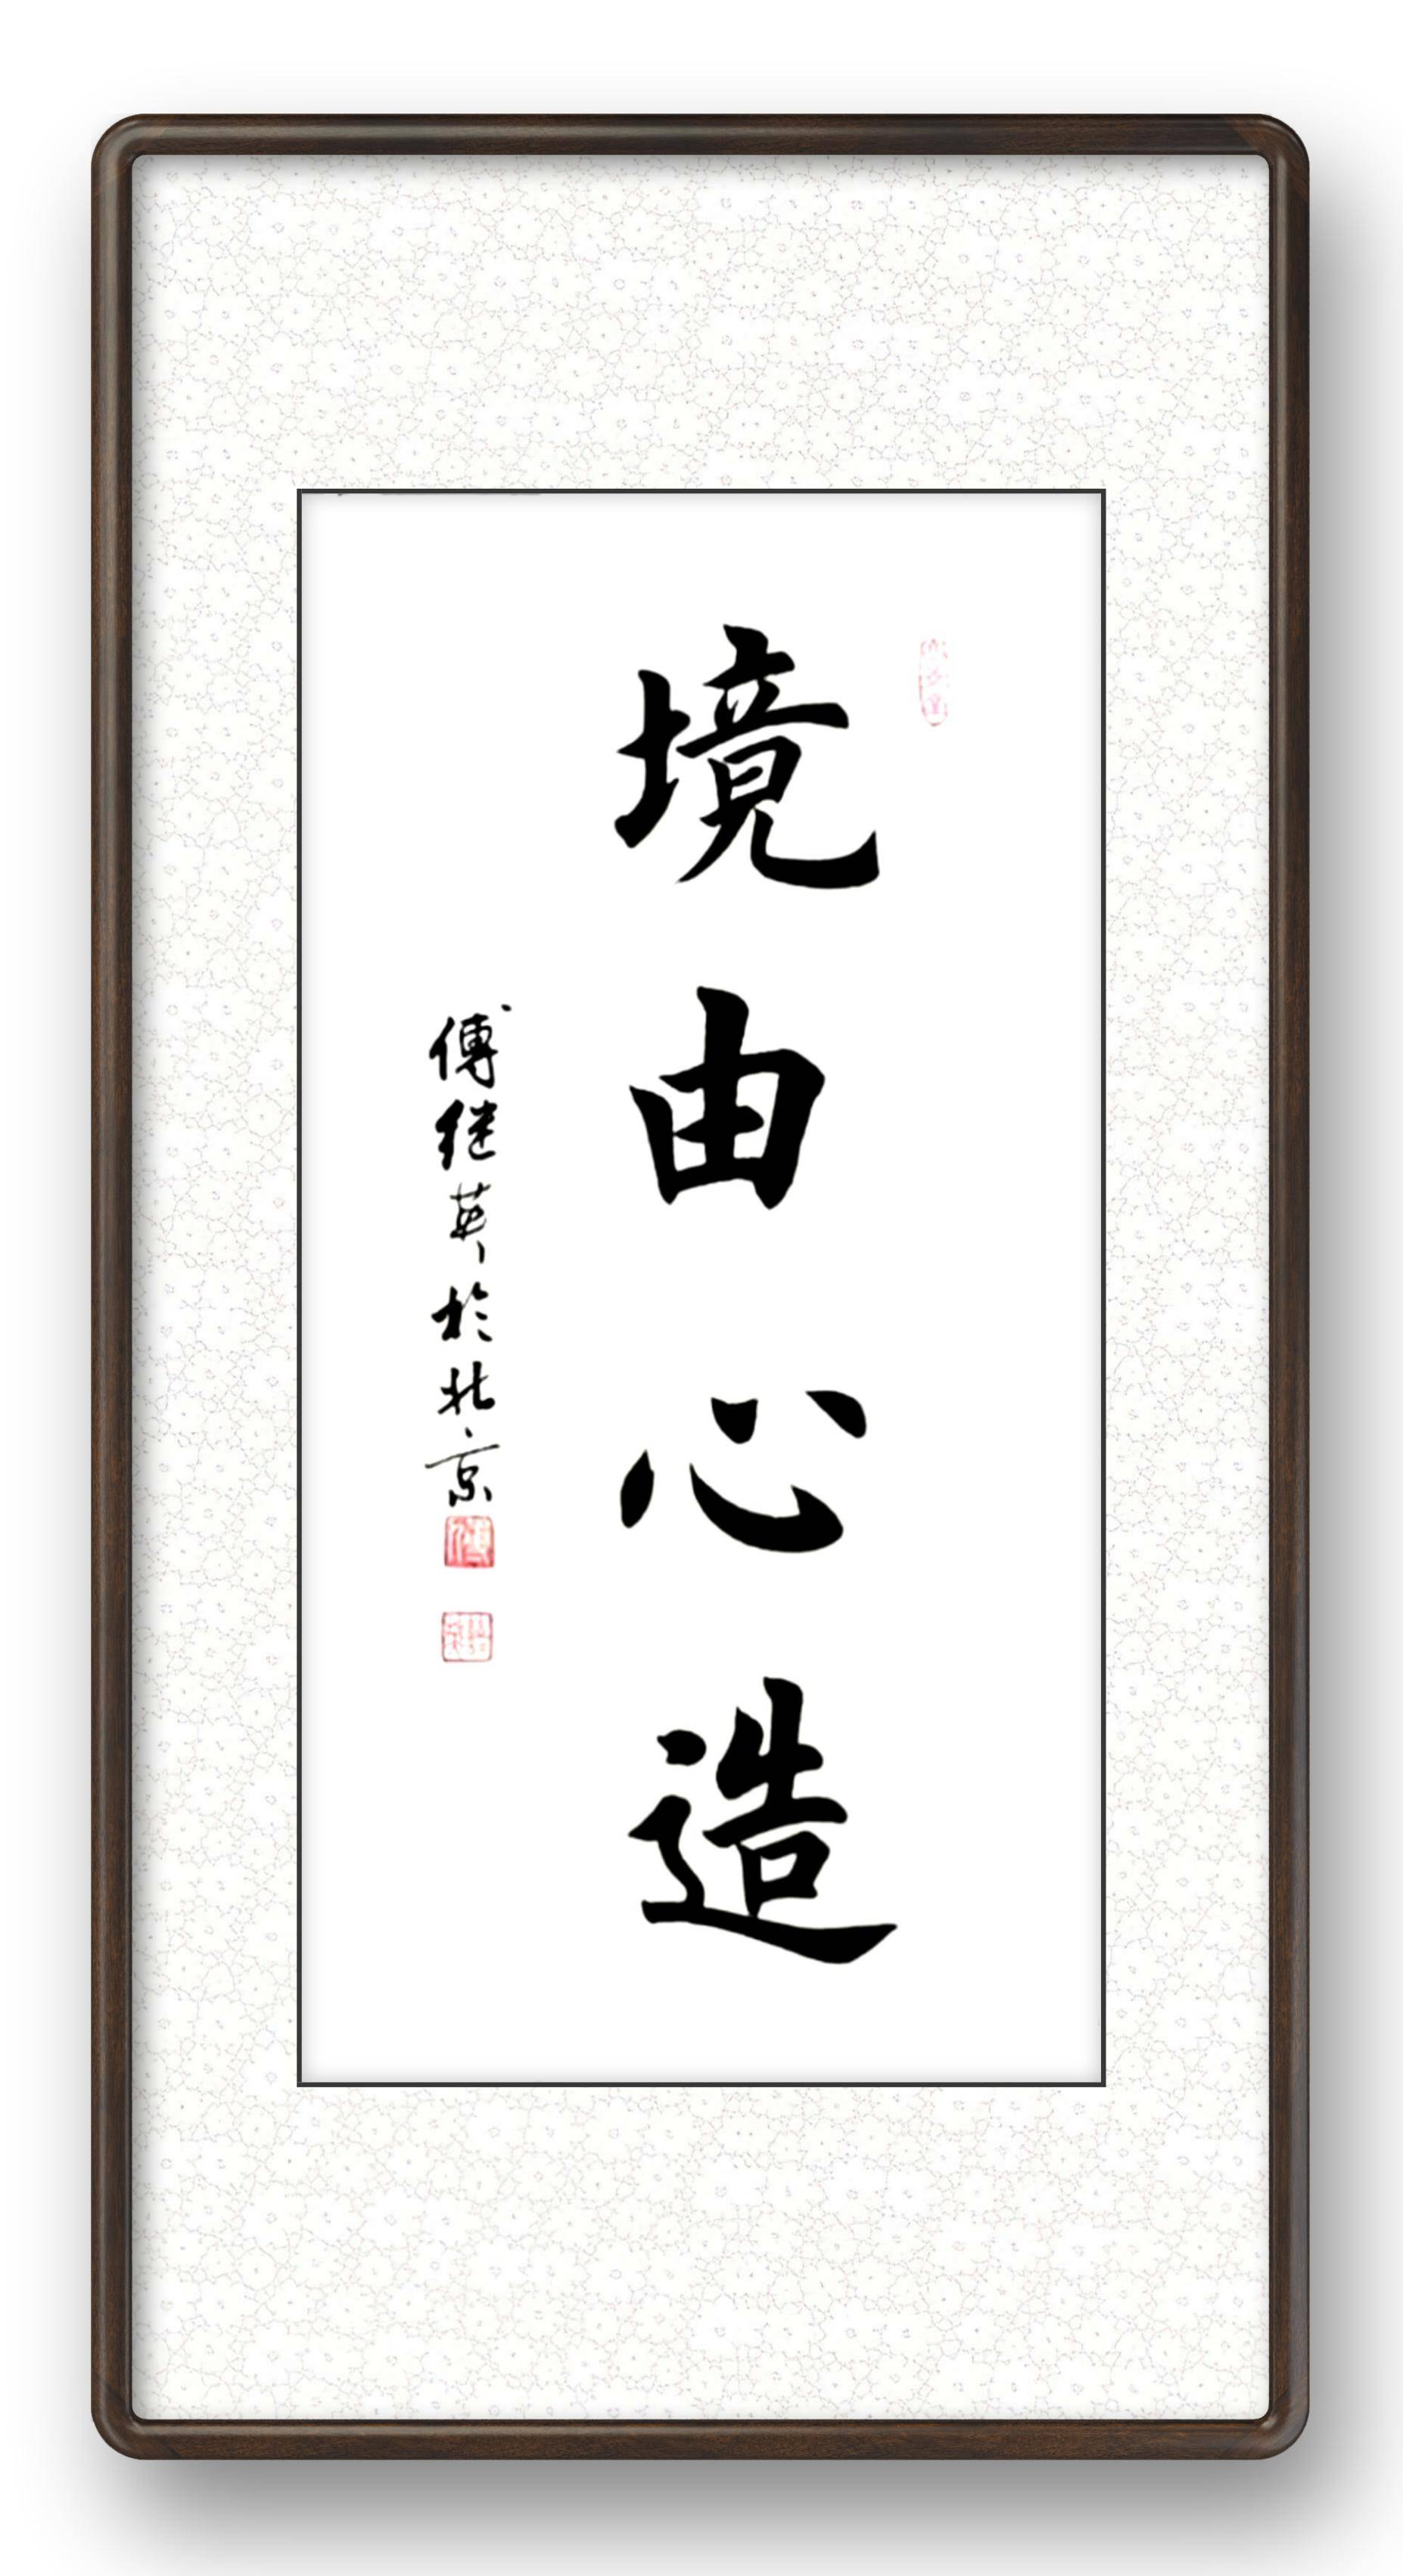 境由心造
傅继英於北京